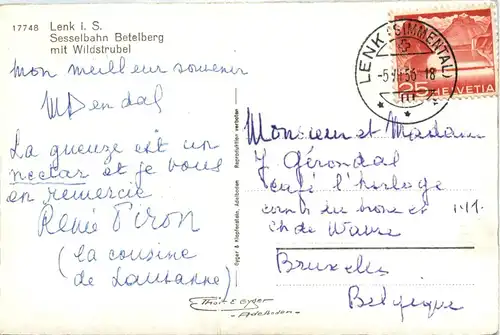 17748 Lenk i. S.
Sesselbahn Betelberg
mit Wildstrubel
mon meilleur souvenir
La gueuze est un
nectar et je vous
en remercie
René Piron
(la cousine
de Lausanne)
Egger & Klopfenstein, Adelboden Reproduktion verboten
Photo E Gyger
-Adelboden-
LENK (SIMMENTAL)
-5 56-18
25 HELVETIA
Monsieur et Madame
J. Gérondal
café l'horloge
du et
ch de Wavre
Bruxelles
Belgique